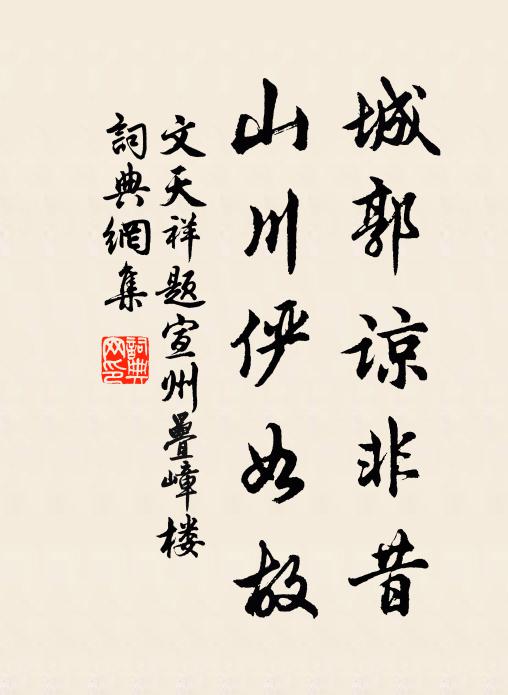 城郭谅非昔
山川俨如故
文天祥题宣州疊嶂楼
詞典網集
詞典網印